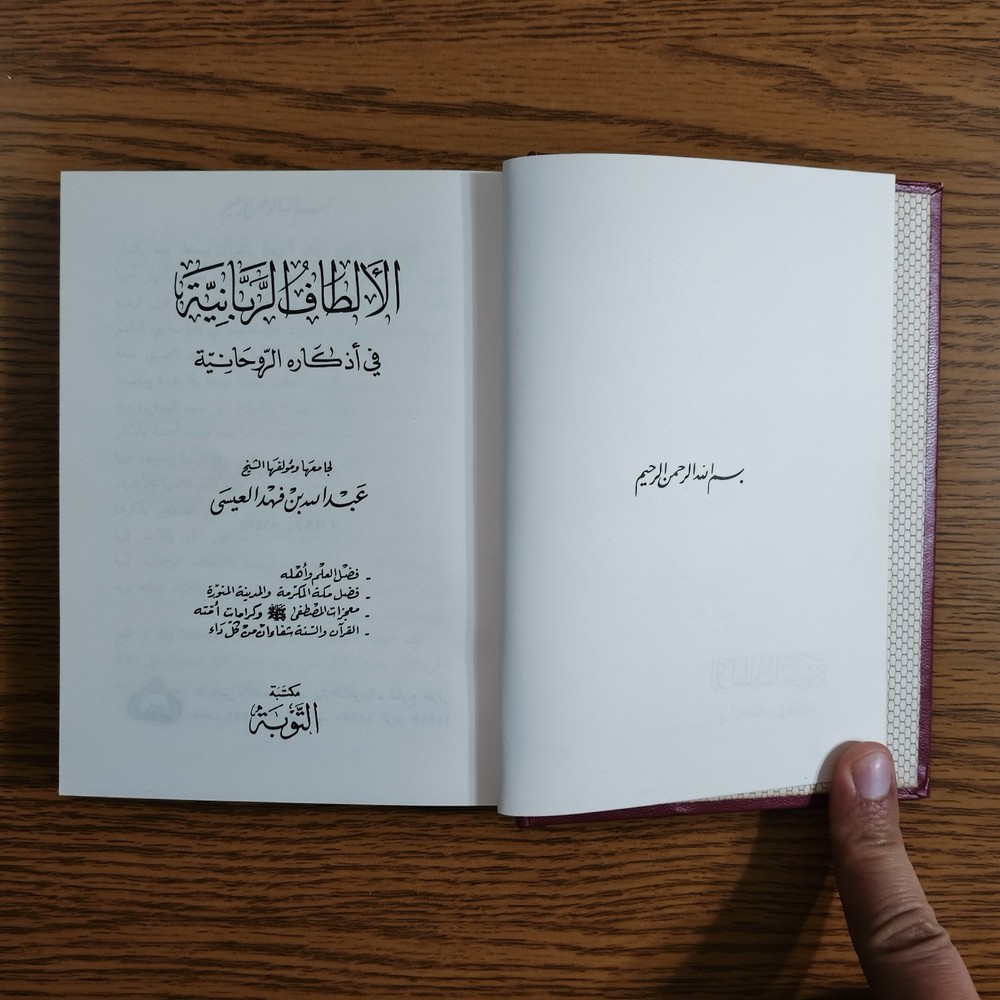 بسم الله الرحمن الرحيم
الألطاف الربانية
في أذكاره الروحانية
لجامعها ومؤلفها الشيخ
عبد الله بن فهد العيسى
- فضل العلم وأهله
- فضل مكة المكرمة والمدينة المنورة
- معجزات المصطفى ﷺ وكرامات أمته
- القرآن والسنة شفاوان من كل داء
مكتبة
التوبة